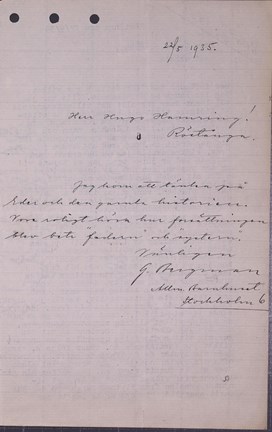 22/5 1955.
Herr Hugo Hamring!
Röstånga.
Jag kom att tänka på
Eder och den gamla historien.
Vore roligt höra hur forsättningen
blev bete "fadern" och "systern".
Vänligen
G. Bergman
Allm. Barnhuset
Stockholm 6